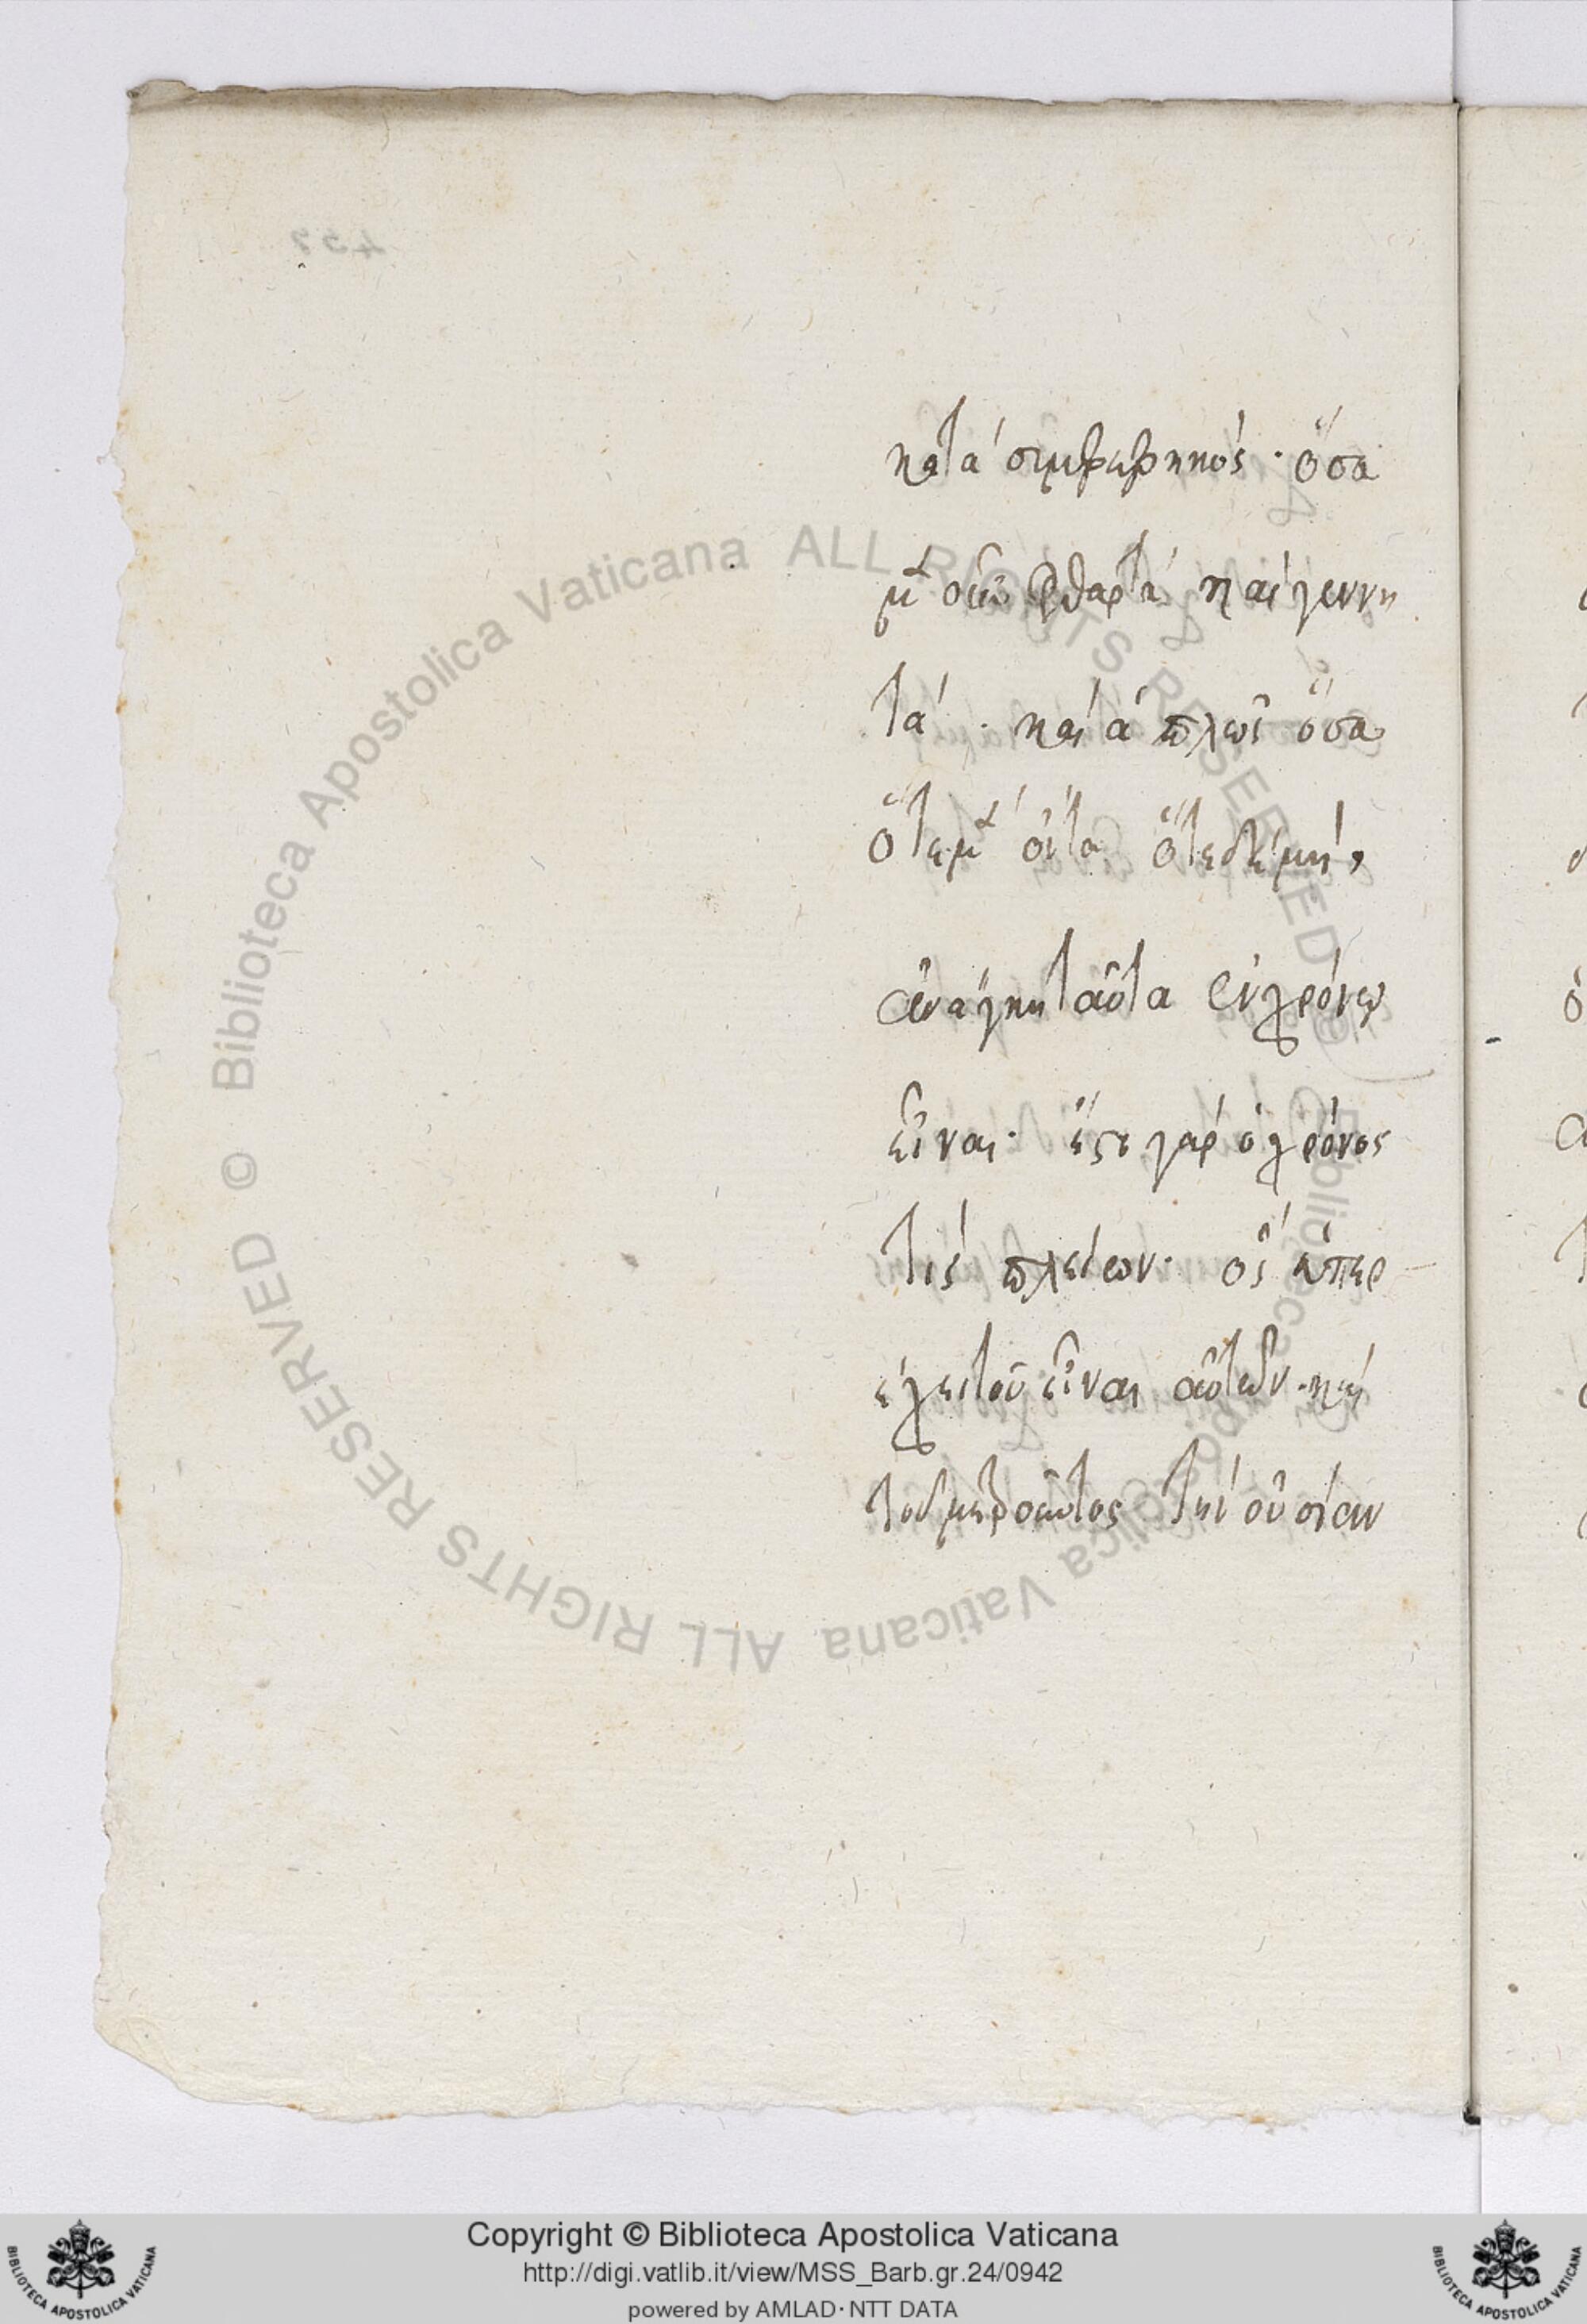 κατὰ συμβεβηκός· ὅσα
μὲν οὖν φθαρτὰ καὶ γεννη
τὰ· καὶ ἁπλῶς ὅσα
ὁτὲ μὲν ὄντα ὁτὲ δὲ μή,
ἀνάγκη ταῦτα ἐν χρόνῳ
εἶναι· ἔστι γάρ ὁ χρόνος
τίς πλείων· ὃς ὑπερ
έχει τοῦ εἶναι αὐτῶν· καὶ
τοῦ μετροῦντος τὴν οὐσίαν
457
Biblioteca Apostolica Vaticana ALL RIGHTS RESERVED ©
Biblioteca Apostolica Vaticana ALL RIGHTS RESERVED ©
Copyright © Biblioteca Apostolica Vaticana
http://digi.vatlib.it/view/MSS_Barb.gr.24/0942
powered by AMLAD·NTT DATA
BIBLIOTECA APOSTOLICA VATICANA
BIBLIOTECA APOSTOLICA VATICANA